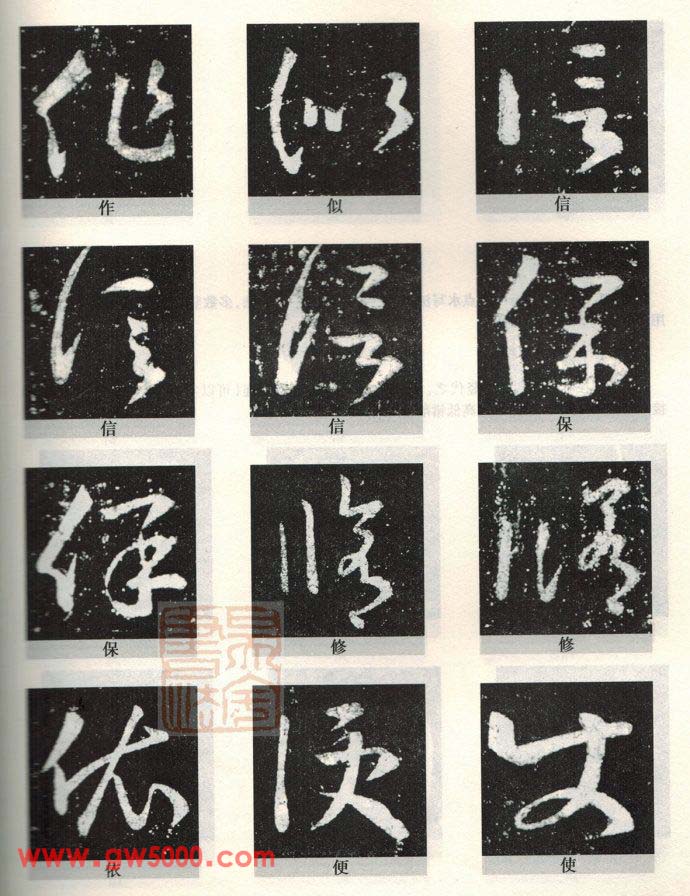 作 似 信
信 信 保
保 修 修
依 便 使
www.gw5000.com